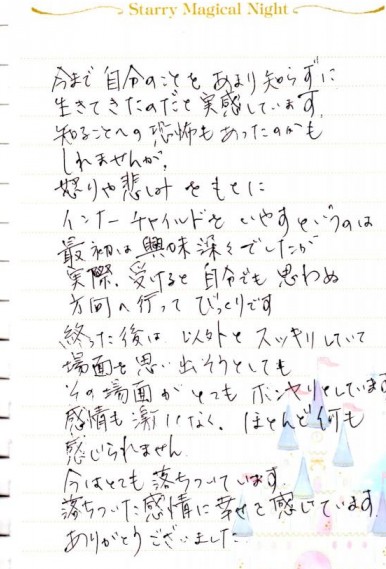 Starry Magical Night
今まで自分のことをあまり知らずに
生きてきたのだと実感しています。
知ることへの恐怖もあったのかも
しれませんが、
怒りや悲しみをもとに
インナーチャイルドをいやすというのは
最初は興味深々でしたが
実際、受けると自分でも思わぬ
方向へ行ってびっくりです
終った後は以外とスッキリしていて
場面を思い出そうとしても
その場面がとてもボンヤリとしています
感情も激しくなく、ほとんど何も
感じられません
今はとても落ちついています。
落ちついた感情に幸せを感じています。
ありがとうございました